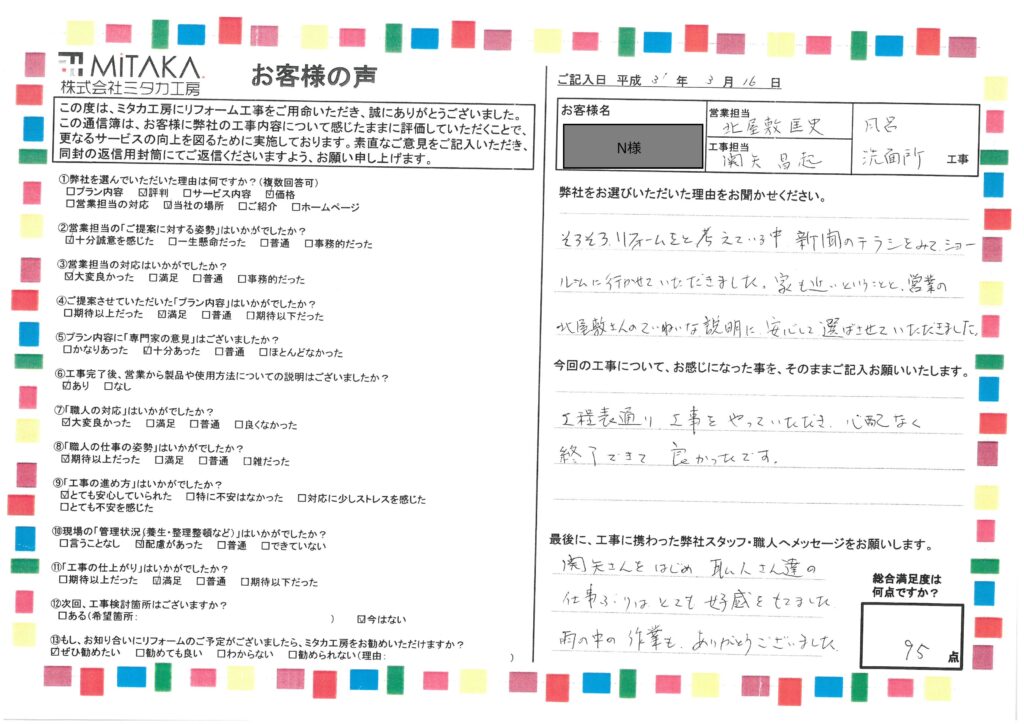 MiTAKA
株式会社ミタカ工房
お客様の声
この度は、ミタカ工房にリフォーム工事をご用命いただき、誠にありがとうございました。
この通信簿は、お客様に弊社の工事内容について感じたままに評価していただくことで、
更なるサービスの向上を図るために実施しております。素直なご意見をご記入いただき、
同封の返信用封筒にてご返信くださいますよう、お願い申し上げます。
①弊社を選んでいただいた理由は何ですか?(複数回答可)
□プラン内容 ☑評判 □サービス内容 ☑価格
□営業担当の対応 ☑当社の場所 □ご紹介 □ホームページ
②営業担当の「ご提案に対する姿勢」はいかがでしたか?
☑十分誠意を感じた □一生懸命だった □普通 □事務的だった
③営業担当の対応はいかがでしたか?
☑大変良かった □満足 □普通 □事務的だった
④ご提案させていただいた「プラン内容」はいかがでしたか?
□期待以上だった ☑満足 □普通 □期待以下だった
⑤プラン内容に「専門家の意見」はございましたか?
□かなりあった ☑十分あった □普通 □ほとんどなかった
⑥工事完了後、営業から製品や使用方法についての説明はございましたか?
☑あり □なし
⑦「職人の対応」はいかがでしたか?
☑大変良かった □満足 □普通 □良くなかった
⑧「職人の仕事の姿勢」はいかがでしたか?
☑期待以上だった □満足 □普通 □雑だった
⑨「工事の進め方」はいかがでしたか?
☑とても安心していられた □特に不安はなかった □対応に少しストレスを感じた
□とても不安を感じた
⑩現場の「管理状況(養生・整理整頓など)」はいかがでしたか?
□言うことなし ☑配慮があった □普通 □できていない
⑪「工事の仕上がり」はいかがでしたか?
□期待以上だった ☑満足 □普通 □期待以下だった
⑫次回、工事検討箇所はございますか?
□ある(希望箇所: ) ☑今はない
⑬もし、お知り合いにリフォームのご予定がございましたら、ミタカ工房をお勧めいただけますか?
☑ぜひ勧めたい □勧めても良い □わからない □勧められない(理由: )
ご記入日 平成 31 年 3 月 16 日
お客様名
N様
営業担当
北屋敷匡史
工事担当
関矢 昌起
風呂
洗面所 工事
弊社をお選びいただいた理由をお聞かせください。
そろそろリフォームをと考えている中 新聞のチラシをみてショー
ルームに行かせていただきました。家も近いということと、営業の
北屋敷さんのていねいな説明に、安心して選ばさせていただきました。
今回の工事について、お感じになった事を、そのままご記入お願いいたします。
工程表通り 工事を やっていただき、心配なく
終了できて 良かったです。
最後に、工事に携わった弊社スタッフ・職人へメッセージをお願いします。
関矢さんをはじめ 職人さん達の
仕事ぶりはとても好感をもてました
雨の中の作業も、ありがとうございました
総合満足度は
何点ですか?
95 点